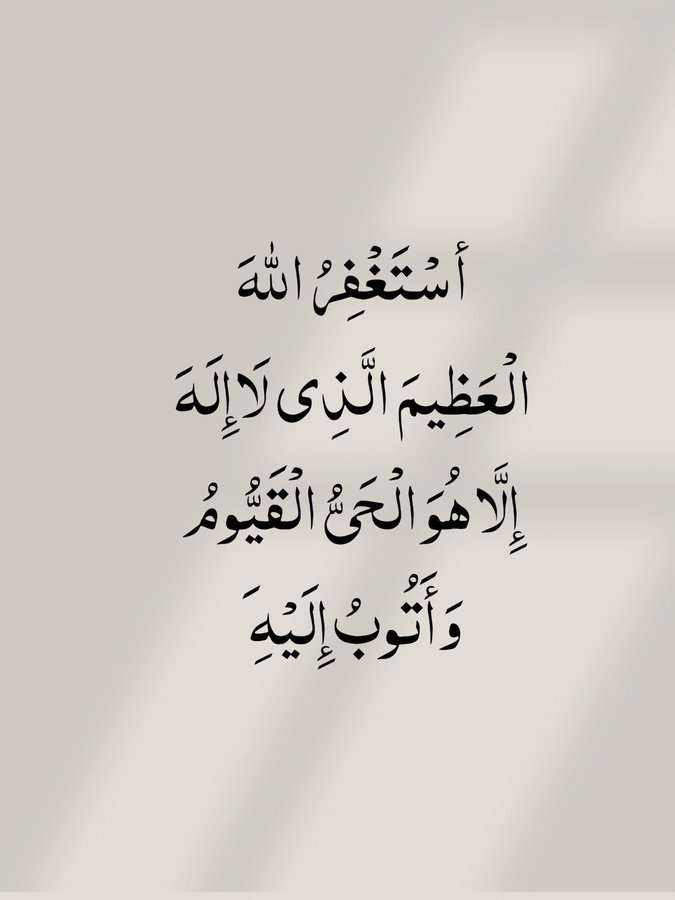 أَسْتَغْفِرُ اللهَ
الْعَظِيمَ الَّذِى لَا إِلَهَ
إِلَّا هُوَ الْحَىُّ الْقَيُّومُ
وَأَتُوبُ إِلَيْهَِ